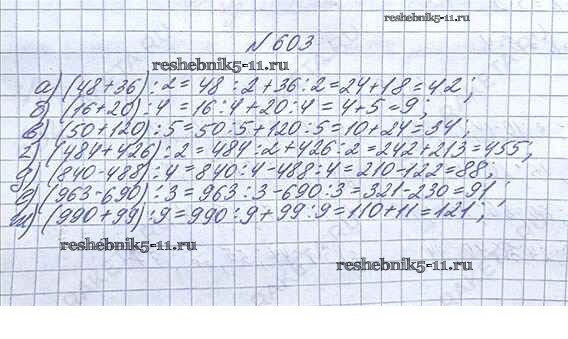 reshebnik5-11.ru
№603
reshebnik5-11.ru
а) (48+36):2=48:2+36:2=24+18=42;
б) (16+20):4=16:4+20:4=4+5=9;
в) (50+120):5=50:5+120:5=10+24=34;
г) (484+426):2=484:2+426:2=242+213=455;
д) (840-488):4=840:4-488:4=210-122=88;
е) (963-690):3=963:3-690:3=321-230=91;
ж) (990+99):9=990:9+99:9=110+11=121;
reshebnik5-11.ru
reshebnik5-11.ru